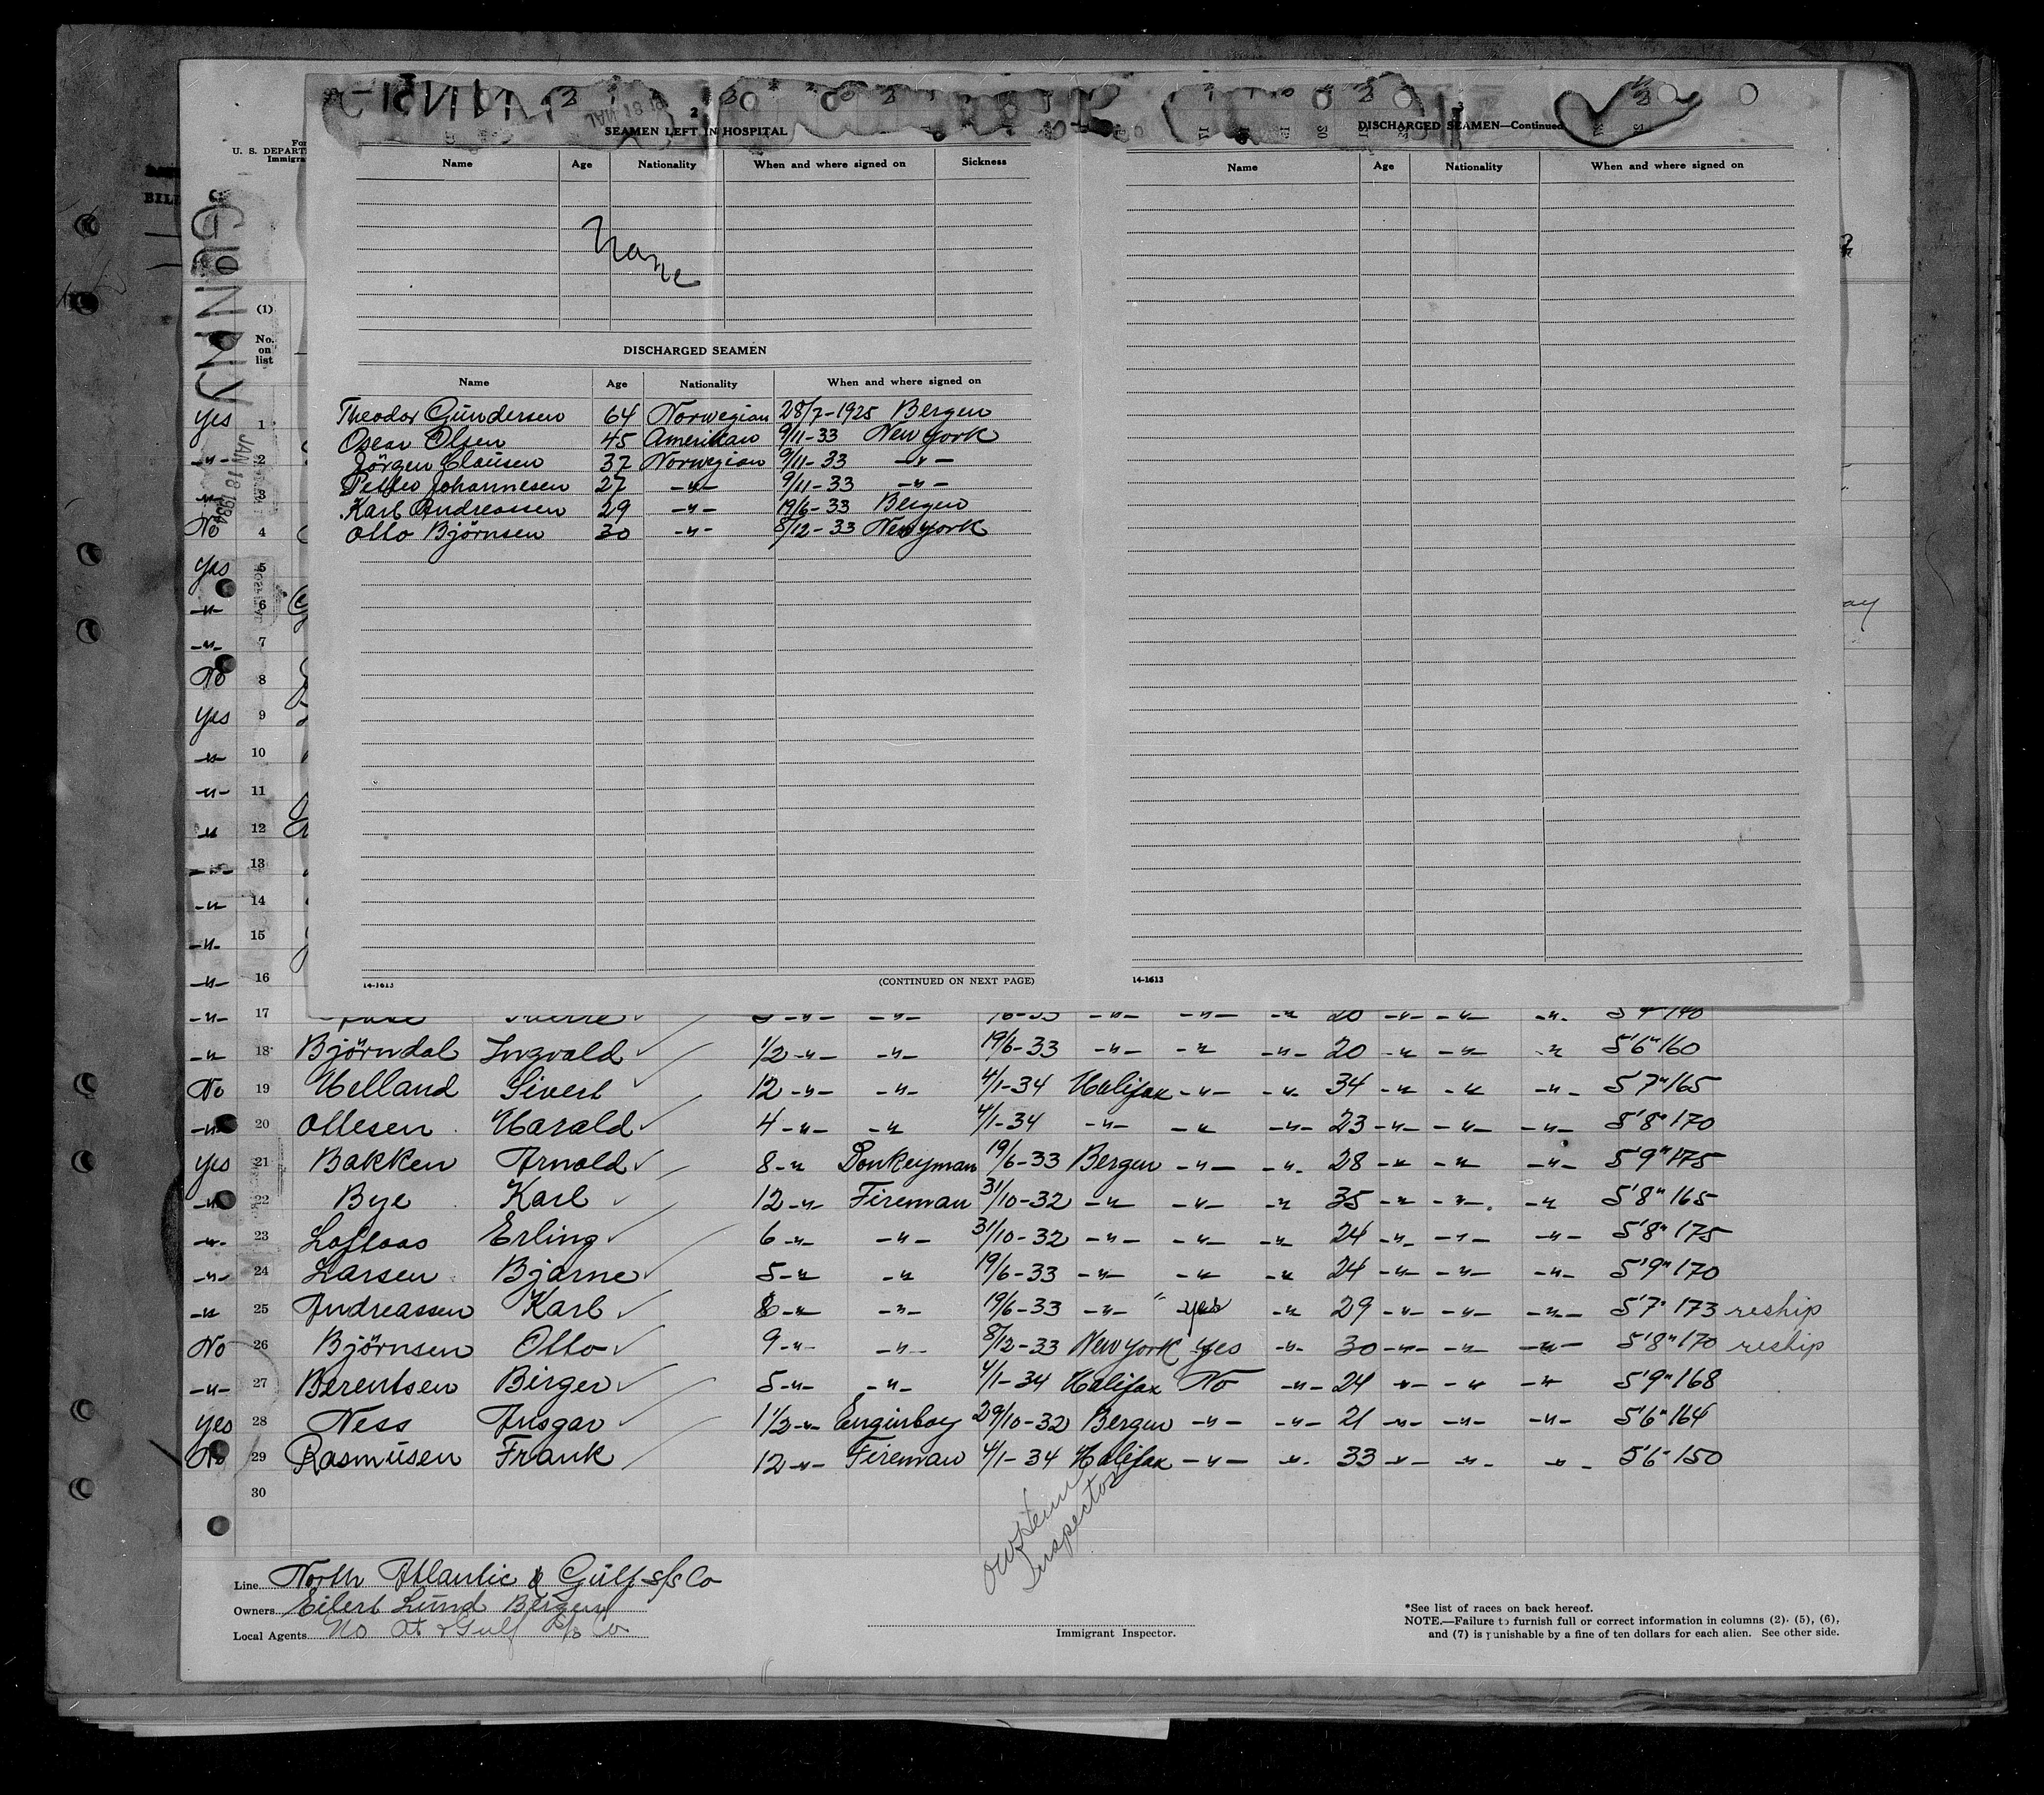 SEAMEN LEFT IN HOSPITAL
Name Age Nationality When and where signed on Sickness
None
DISCHARGED SEAMEN
Name Age Nationality When and where signed on
Theodor Gundersen 64 Norwegian 28/7-1925 Bergen
Oscar Olsen 45 Amerikan 9/11-33 New York
Jörgen Clausen 37 Norwegian 9/11-33 -"-
Johannesen 27 -"- 9/11-33 -"-
Karl Andreassen 29 -"- 19/6-33 Bergen
Otto Björnsen 30 -"- 8/12-33 New York
14-1613
(CONTINUED ON NEXT PAGE)
3
DISCHARGED SEAMEN—Continued
Name Age Nationality When and where signed on
14-1613
U. S. DEPART
Immigra
GUNNY
JAN 18 1934
(1)
No. on list
Yes 1
-"- 2
-"- 3
No 4
Yes 5
-"- 6
-"- 7
No 8
Yes 9
-"- 10
-"- 11
-"- 12
-"- 13
-"- 14
-"- 15
-"- 16
-"- 17 20 -"- -"- -"-
-"- 18 Björndal Ingvald 1/2 -"- -"- 19/6-33 -"- -"- -"- 20 -"- -"- -"- 5'6" 160
No 19 Helland Sivert 12 -"- -"- 4/1-34 Halifax -"- -"- 34 -"- -"- -"- 5'7" 165
-"- 20 Ottesen Harald 4 -"- -"- 4/1-34 -"- -"- -"- 23 -"- -"- -"- 5'8" 170
Yes 21 Bakken Arnold 8 -"- Donkeyman 19/6-33 Bergen -"- -"- 28 -"- -"- -"- 5'9" 175
-"- 22 Bye Karl 12 -"- Fireman 31/10-32 -"- -"- -"- 35 -"- -"- -"- 5'8" 165
-"- 23 Loftaas Erling 6 -"- -"- 31/10-32 -"- -"- -"- 24 -"- -"- -"- 5'8" 175
-"- 24 Larsen Bjarne 5 -"- -"- 19/6-33 -"- -"- -"- 24 -"- -"- -"- 5'9" 170
-"- 25 Andreassen Karl 8 -"- -"- 19/6-33 -"- yes -"- 29 -"- -"- -"- 5'7" 173 reship
No 26 Björnsen Otto 9 -"- -"- 8/12-33 New York yes -"- 30 -"- -"- -"- 5'8" 170 reship
-"- 27 Berentsen Birger 5 -"- -"- 4/1-34 Halifax No -"- 24 -"- -"- -"- 5'9" 168
Yes 28 Ness Ansgar 1 1/2 -"- Enginboy 29/10-32 Bergen -"- -"- 21 -"- -"- -"- 5'6" 164
No 29 Rasmüsen Frank 12 -"- Fireman 4/1-34 Halifax -"- -"- 33 -"- -"- -"- 5'6" 150
30
Inspector
Line North Atlantic & Gülf s/s Co
Owners Eilert Lünd Bergen
Local Agents No At & Gulf S/S Co
Immigrant Inspector.
*See list of races on back hereof.
NOTE.—Failure to furnish full or correct information in columns (2), (5), (6),
and (7) is punishable by a fine of ten dollars for each alien. See other side.